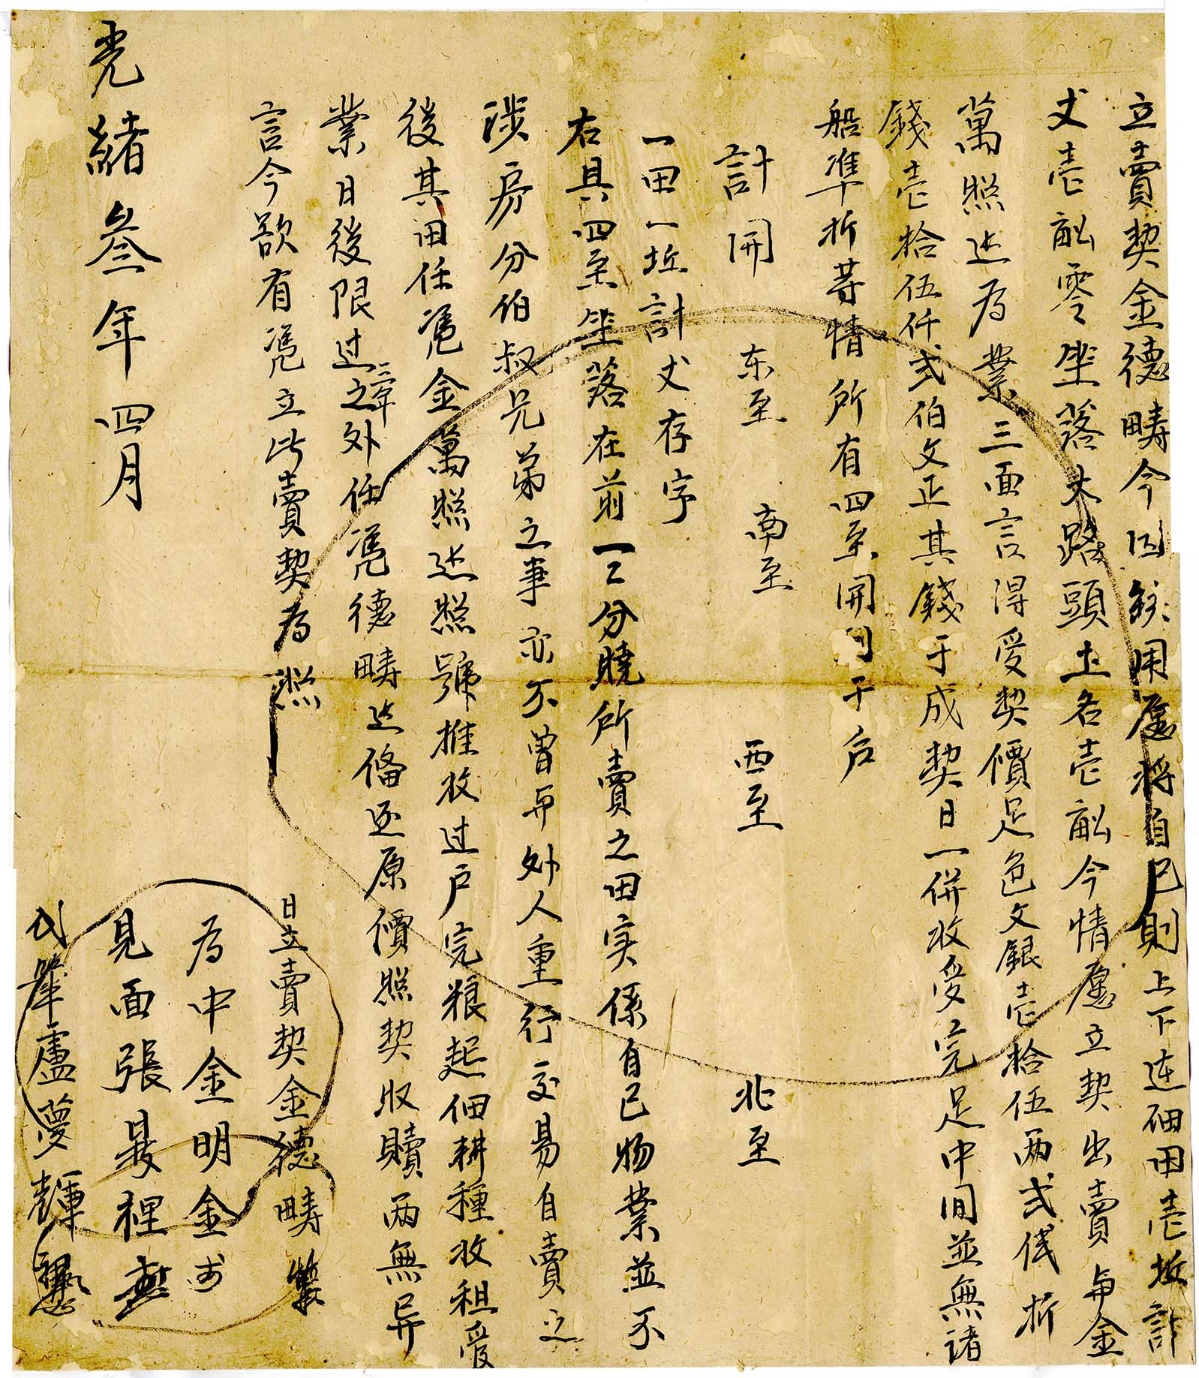 立賣契金德疇今因缺用愿將自己則上下連細田壹坵計
丈壹畝零坐落大路頭土名壹畝今情愿立契出賣與金
萬照边為業三面言得受契價足色文銀壹拾伍兩弍伐折
錢壹拾伍仟弍伯文正其錢于成契日一併收受完足中间並無諸
船準折䓁情所有四至開列于后
計開 东至 南至 西至 北至
一田一坵計丈存字
右具四至坐落在前一乙分曉所賣之田实係自己物業並不
涉房分伯叔兄弟之事亦不曾與外人重行交易自賣之
後其田任凭金萬照边照號推收过户完粮起佃耕種收租管
業日後限过三年之外任凭德疇边俻还原價照契収贖兩無异
言今欲有凭立此賣契為照
光緒叁年四月
日立賣契金德疇
為中金明金
見面張最裡
代筆盧夢輝